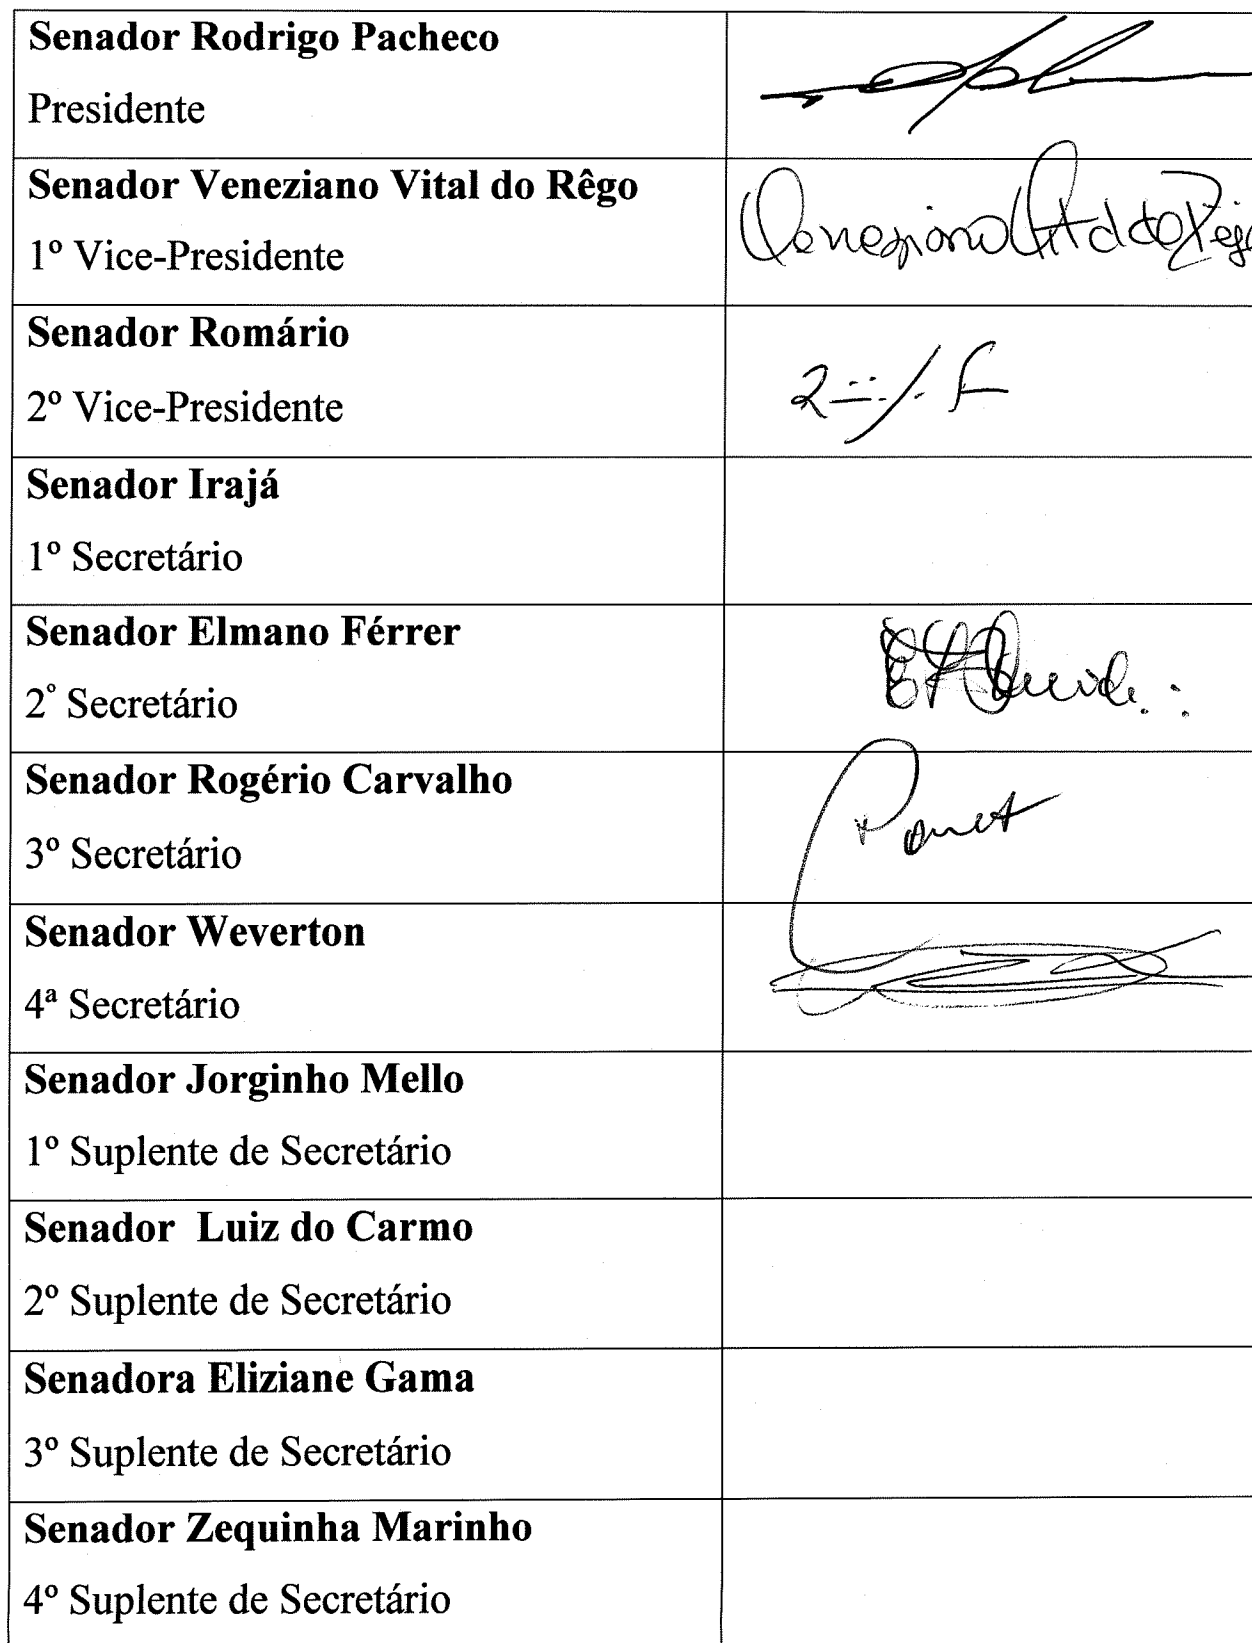 Senador Rodrigo Pacheco
Presidente
Senador Veneziano Vital do Rêgo
1º Vice-Presidente
Veneziano Vital do Rêgo
Senador Romário
2º Vice-Presidente
Senador Irajá
1º Secretário
Senador Elmano Férrer
2º Secretário
Senador Rogério Carvalho
3º Secretário
Senador Weverton
4ª Secretário
Senador Jorginho Mello
1º Suplente de Secretário
Senador Luiz do Carmo
2º Suplente de Secretário
Senadora Eliziane Gama
3º Suplente de Secretário
Senador Zequinha Marinho
4º Suplente de Secretário